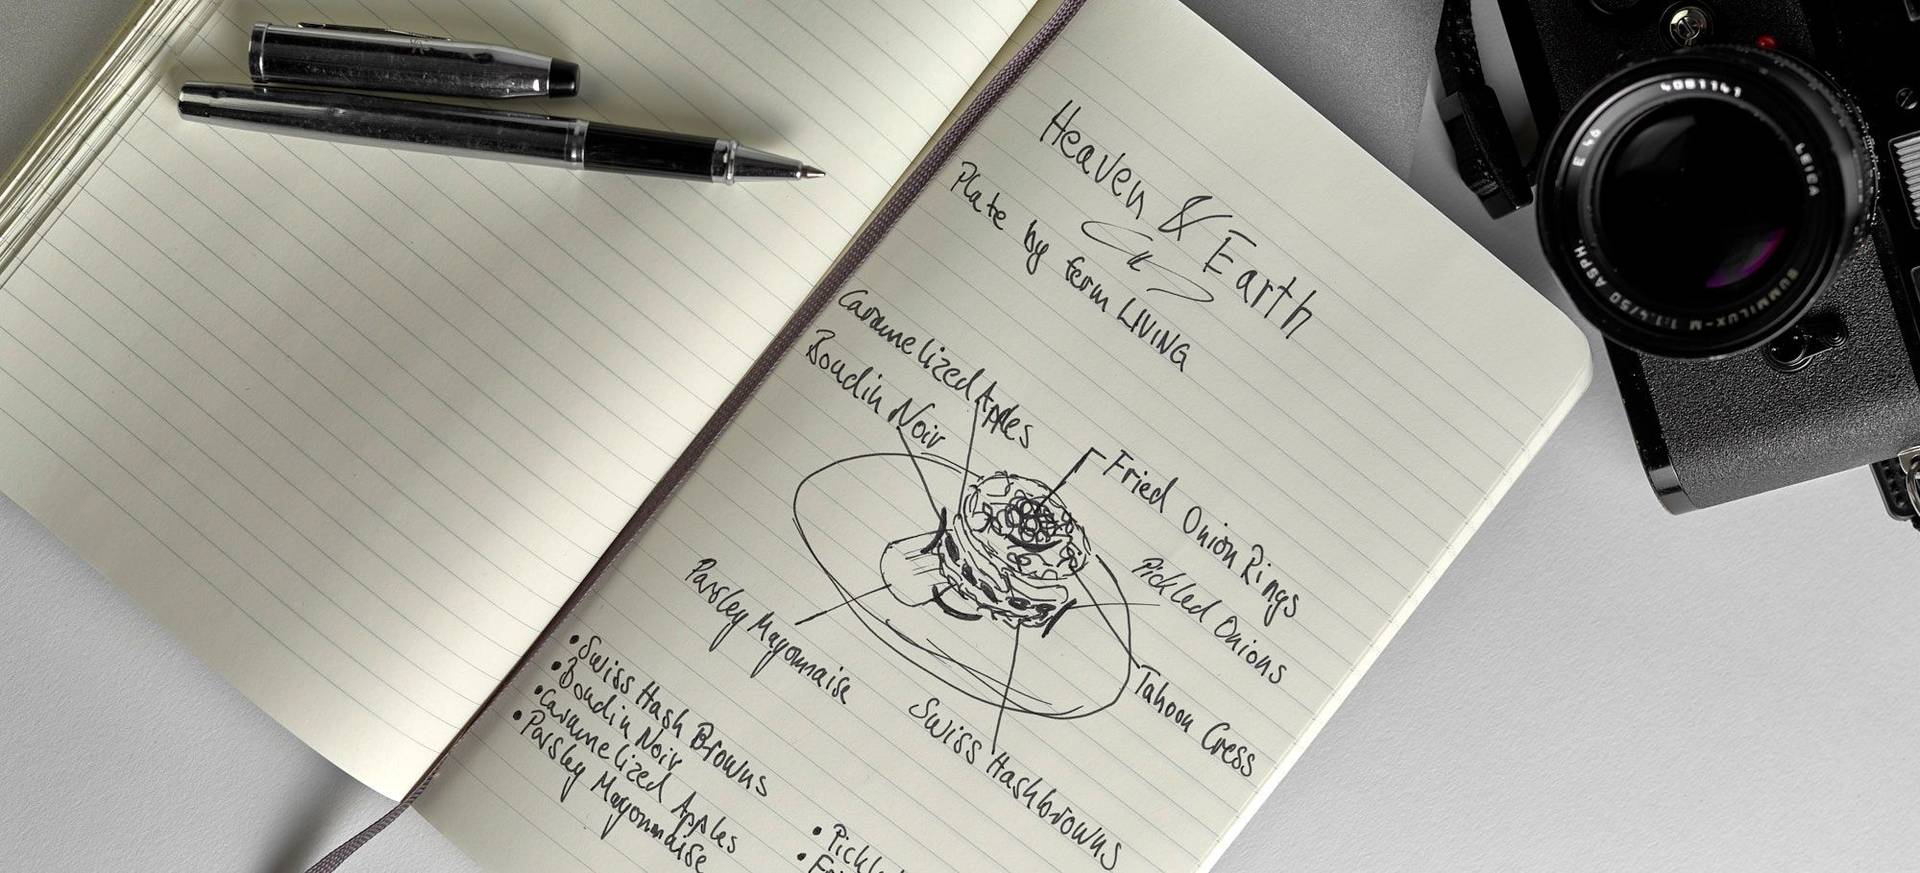 Heaven & Earth
Plate by ferm LIVING
Caramelized Apples
Boudin Noir
Fried Onion Rings
Pickled Onions
Parsley Mayonnaise
Tahoon Cress
Swiss Hashbrowns
• Swiss Hash Browns
• Boudin Noir
• Caramelized Apples
• Parsley Mayonnaise
4081141
E46
LEICA
SUMMILUX-M 1:1.4/50 ASPH.